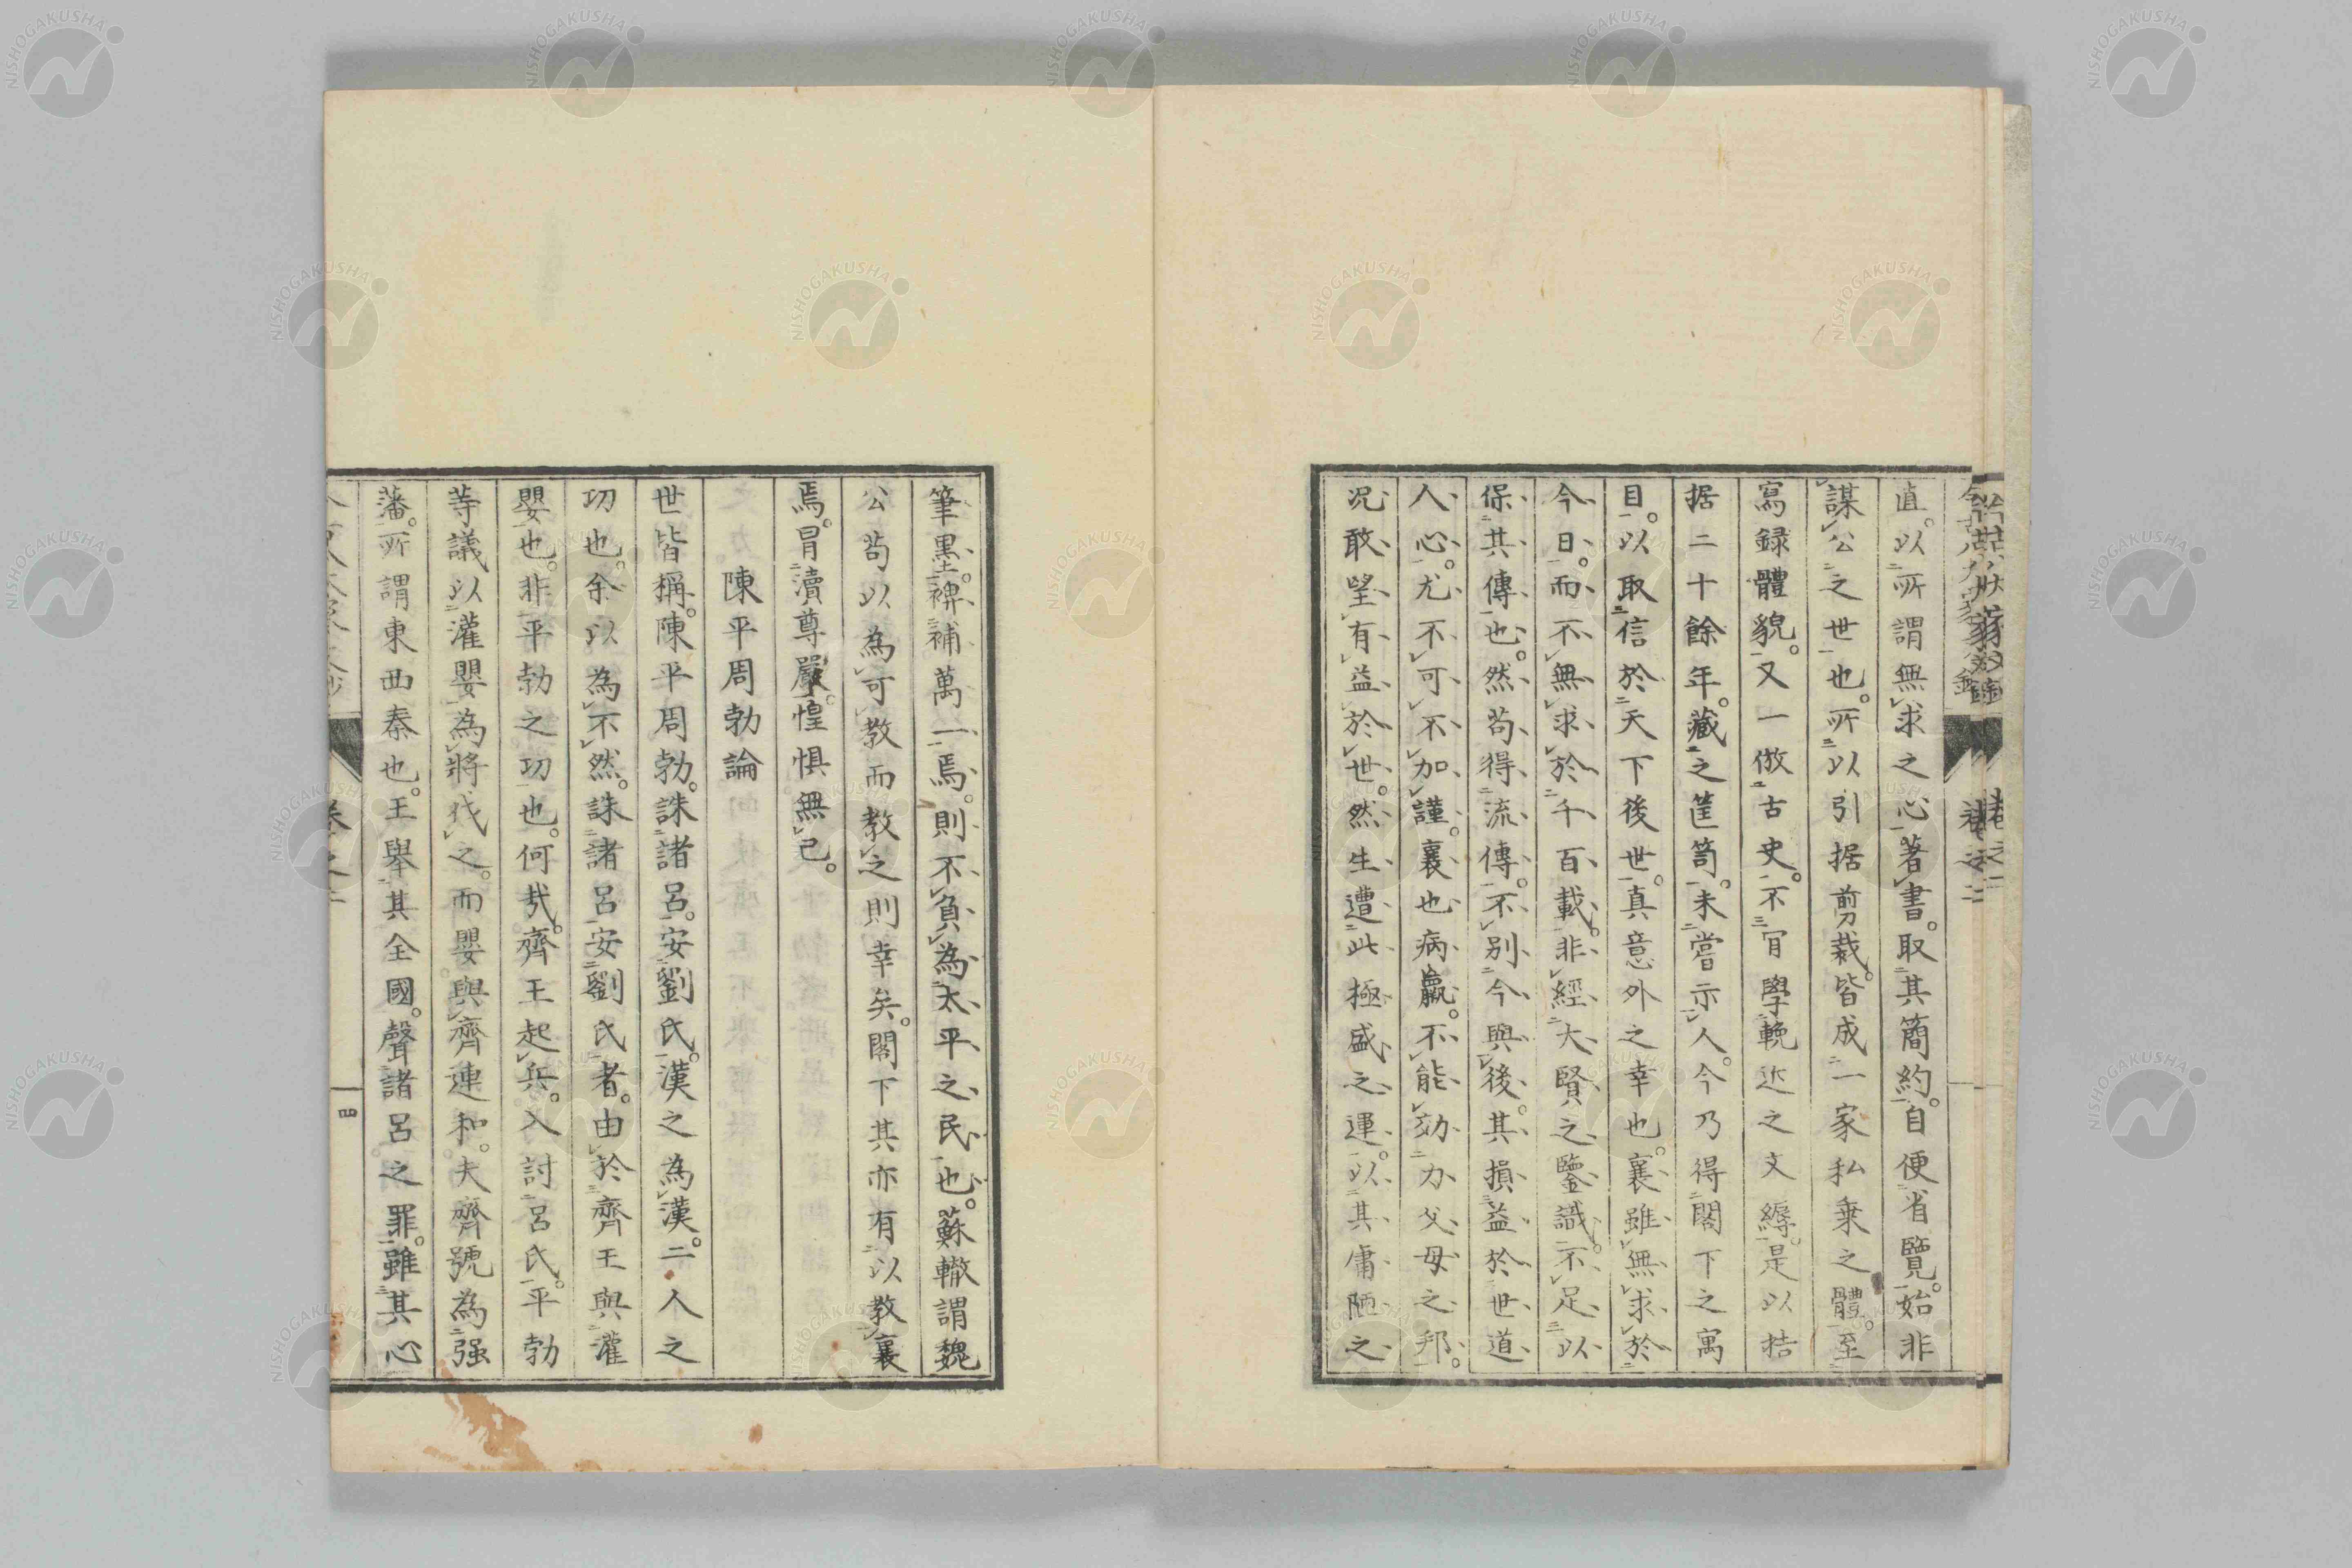 直。以所謂無求之心著書。取其簡約。自便省覽。始非
謀公之世也。所以引据剪裁。皆成一家私乗之體。至
寫録體貌。又一倣古史。不肎學輓近之文縟。是以拮
据二十餘年。藏之筐笥。未嘗示人。今乃得閣下之寓
目。以取信於天下後世。真意外之幸也。襄雖無求於
今日。而不無求於千百載。非經大賢之鑒識。不足以
保其傳也。然苟得流傳。不別今與後。其損益於世道
人心。尤不可不加謹。襄也病羸。不能効力父母之邦。
况敢望有益於世。然生遭此極盛之運。以其庸陋之
筆墨。裨補萬一焉。則不負為太平之民也。蘇轍謂魏
公苟以為可教而教之則幸矣。閣下其亦有以教襄
焉。冒瀆尊嚴。惶惧無已。
陳平周勃論
世皆稱。陳平周勃。誅諸呂。安劉氏。漢之為漢。二人之
功也。余以為不然。誅諸呂安劉氏者。由於齊王與灌
嬰也。非平勃之功也。何㢤。齊王起兵。入討呂氏。平勃
等議以灌嬰為將伐之。而嬰與齊連和。夫齊號為强
藩。所謂東西秦也。王舉其全國。聲諸呂之罪。雖其心
四
NISHOGAKUSHA